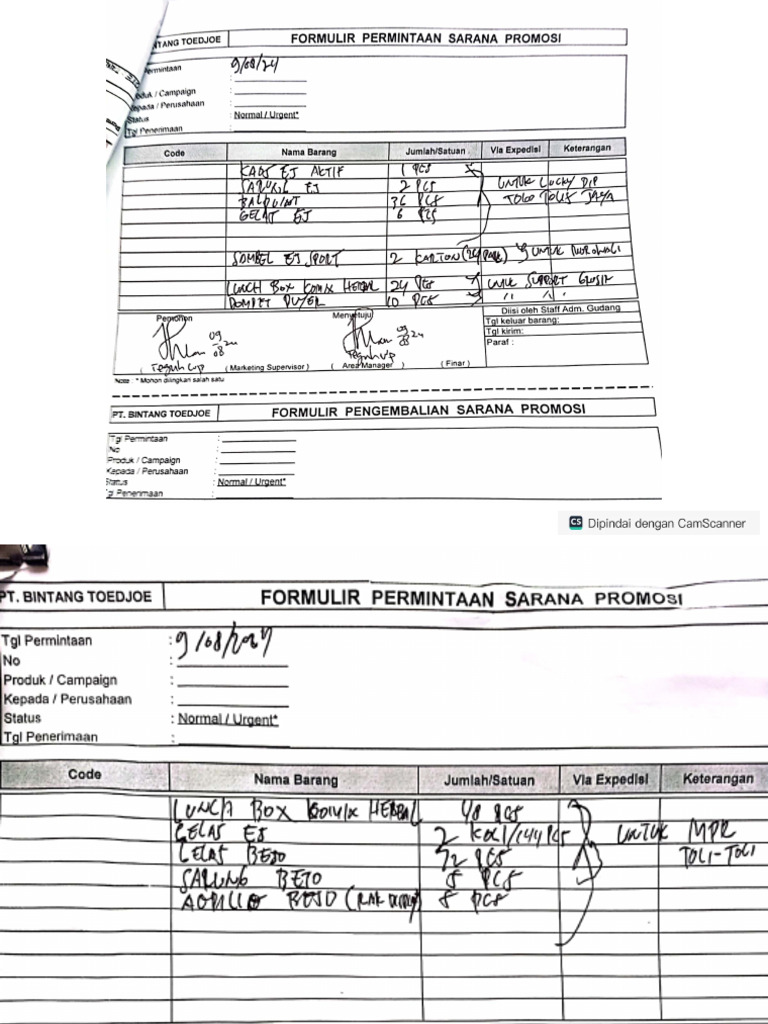 INTANG TOEDJOE FORMULIR PERMINTAAN SARANA PROMOSI
ermintaan 9/08/24
oduk / Campaign :
epada / Perusahaan :
Status : Normal / Urgent*
Tgl Penerimaan :
Code Nama Barang Jumlah/Satuan Via Expedisi Keterangan
KAOS EJ AKTIF 1 PCS
SARUNG EJ 2 PCS UNTUK LUCKY DIP
36 PCS TOKO
GELAS EJ 6 PCS
SOMBEL EJ SPORT 2 KARTON UNTUK
LUNCH BOX KOMIX HERBAL 24 PCS UNTUK SUPPORT
DOMPET PUYER 10 PCS " "
Diisi oleh Staff Adm. Gudang
Pemohon Menyetuju Tgl keluar barang:
Tgl kirim:
Paraf :
09 08 24 09 08 24
Teguh Teguh
( Marketing Supervisor ) ( Area Manager ) (Finar)
Note : * Mohon dilingkari salah satu
PT. BINTANG TOEDJOE FORMULIR PENGEMBALIAN SARANA PROMOSI
Tgl Permintaan :
No :
Produk / Campaign :
Kepada / Perusahaan :
Status : Normal / Urgent*
gl Penerimaan :
CS Dipindai dengan CamScanner
PT. BINTANG TOEDJOE FORMULIR PERMINTAAN SARANA PROMOSI
Tgl Permintaan : 9/08/2024
No :
Produk / Campaign :
Kepada / Perusahaan :
Status : Normal / Urgent*
Tgl Penerimaan :
Code Nama Barang Jumlah/Satuan Via Expedisi Keterangan
LUNCH BOX KOMIX HERBAL 48 PCS
GELAS EJ 2 KOLI/144 PCS UNTUK MPR
GELAS BEJO 72 PCS TOLI-TOLI
SARUNG BEJO 8 PCS
BEJO 8 PCS